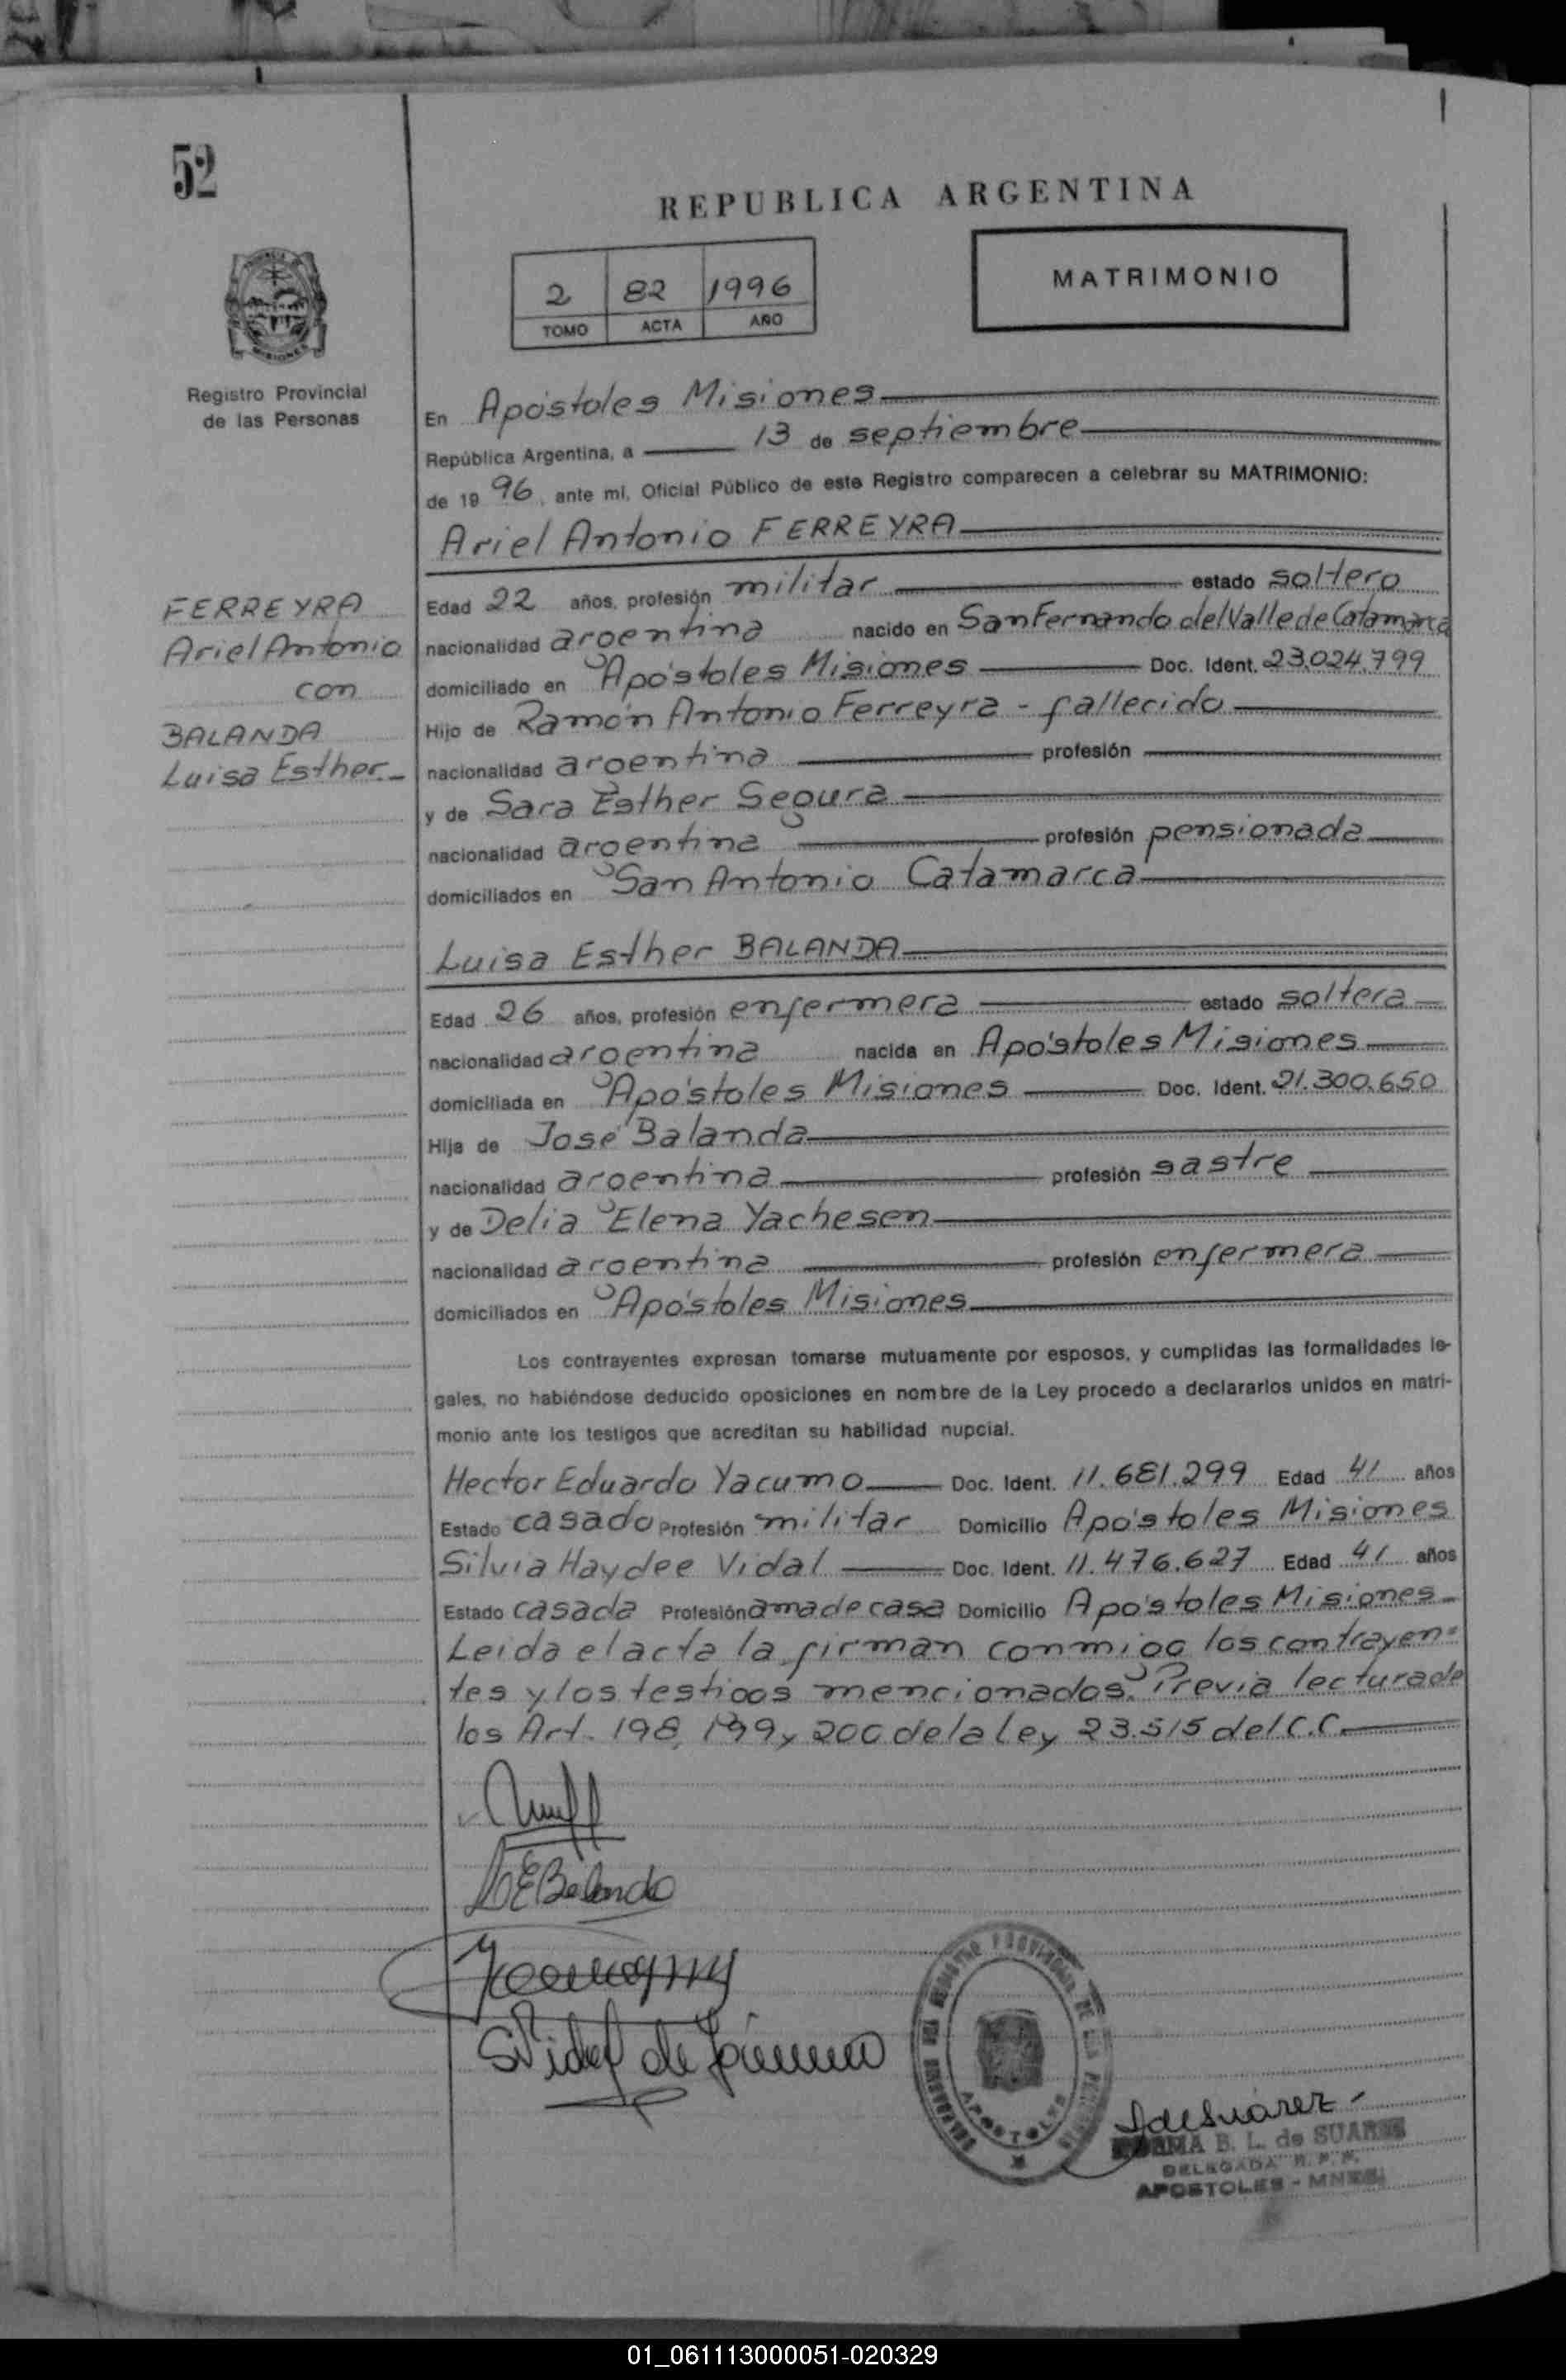 52
REPUBLICA ARGENTINA
2 82 1996
TOMO ACTA AÑO
MATRIMONIO
MISIONES
Registro Provincial
de las Personas
En Apóstoles Misiones
República Argentina, a 13 de septiembre
de 1996, ante mí, Oficial Público de este Registro comparecen a celebrar su MATRIMONIO:
Ariel Antonio FERREYRA
FERREYRA
Ariel Antonio
con
BALANDA
Luisa Esther
Edad 22 años, profesión militar estado soltero
nacionalidad argentina nacido en San Fernando del Valle de Catamarca
domiciliado en Apóstoles Misiones Doc. Ident. 23.024.799
Hijo de Ramón Antonio Ferreyra - fallecido
nacionalidad argentina profesión
y de Sara Esther Segura
nacionalidad argentina profesión pensionada
domiciliados en San Antonio Catamarca
Luisa Esther BALANDA
Edad 26 años, profesión enfermera estado soltera
nacionalidad argentina nacida en Apóstoles Misiones
domiciliada en Apóstoles Misiones Doc. Ident. 21.300.650
Hija de José Balanda
nacionalidad argentina profesión sastre
y de Delia Elena Yachesen
nacionalidad argentina profesión enfermera
domiciliados en Apóstoles Misiones
Los contrayentes expresan tomarse mutuamente por esposos, y cumplidas las formalidades le-
gales, no habiéndose deducido oposiciones en nombre de la Ley procedo a declararlos unidos en matri-
monio ante los testigos que acreditan su habilidad nupcial.
Hector Eduardo Yacumo Doc. Ident. 11.681.299 Edad 41 años
Estado casado Profesión militar Domicilio Apóstoles Misiones
Silvia Haydee Vidal Doc. Ident. 11.476.627 Edad 41 años
Estado casada Profesión ama de casa Domicilio Apóstoles Misiones
Leida el acta la firman conmigo los contrayen=
tes y los testigos mencionados. Previa lectura de
los Art. 198, 199 y 200 de la ley 23.515 del C.C.
LEBalanda
SVidal de
APOSTOLES
de Suárez
B. L. de SUAREZ
DELEGADA R. P. P.
APOSTOLES - MNES
01_061113000051-020329